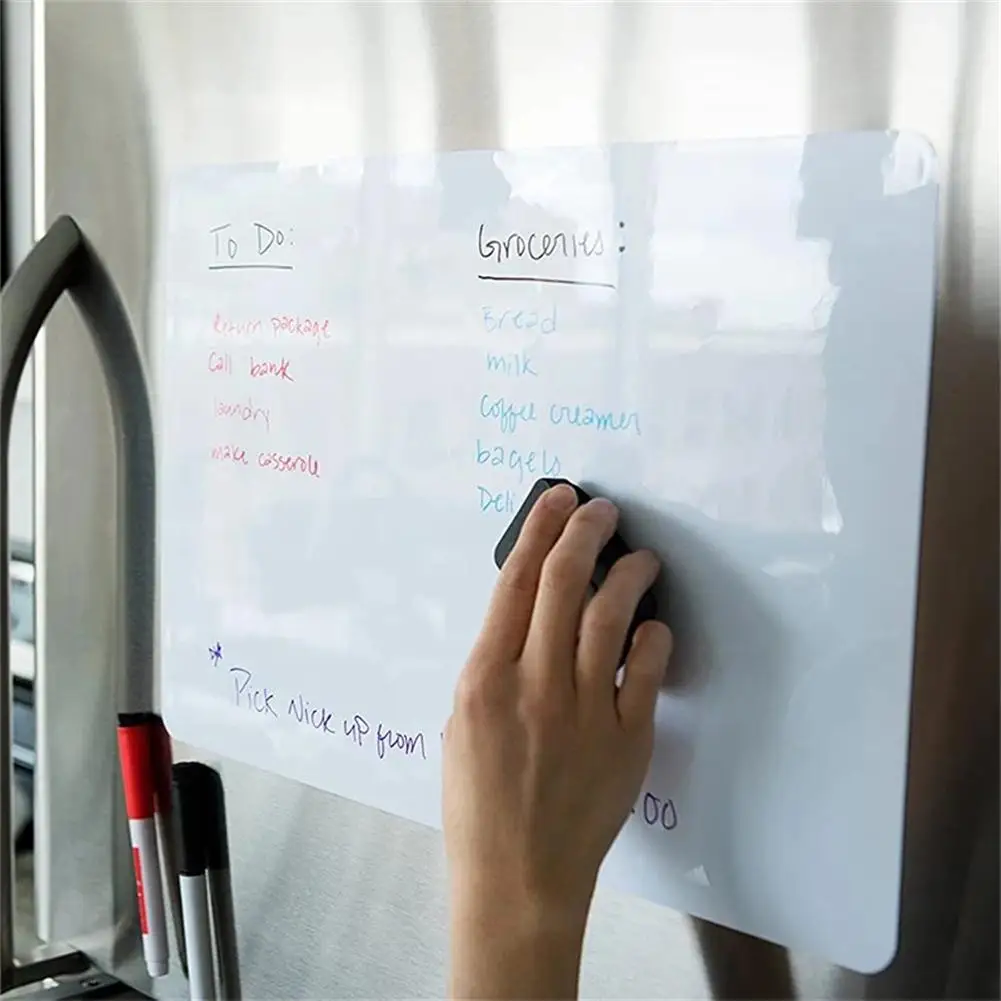 To Do:
Return package
Call bank
laundry
make casserole
Groceries:
Bread
milk
coffee creamer
bagels
Deli
* Pick Nick up from
:00